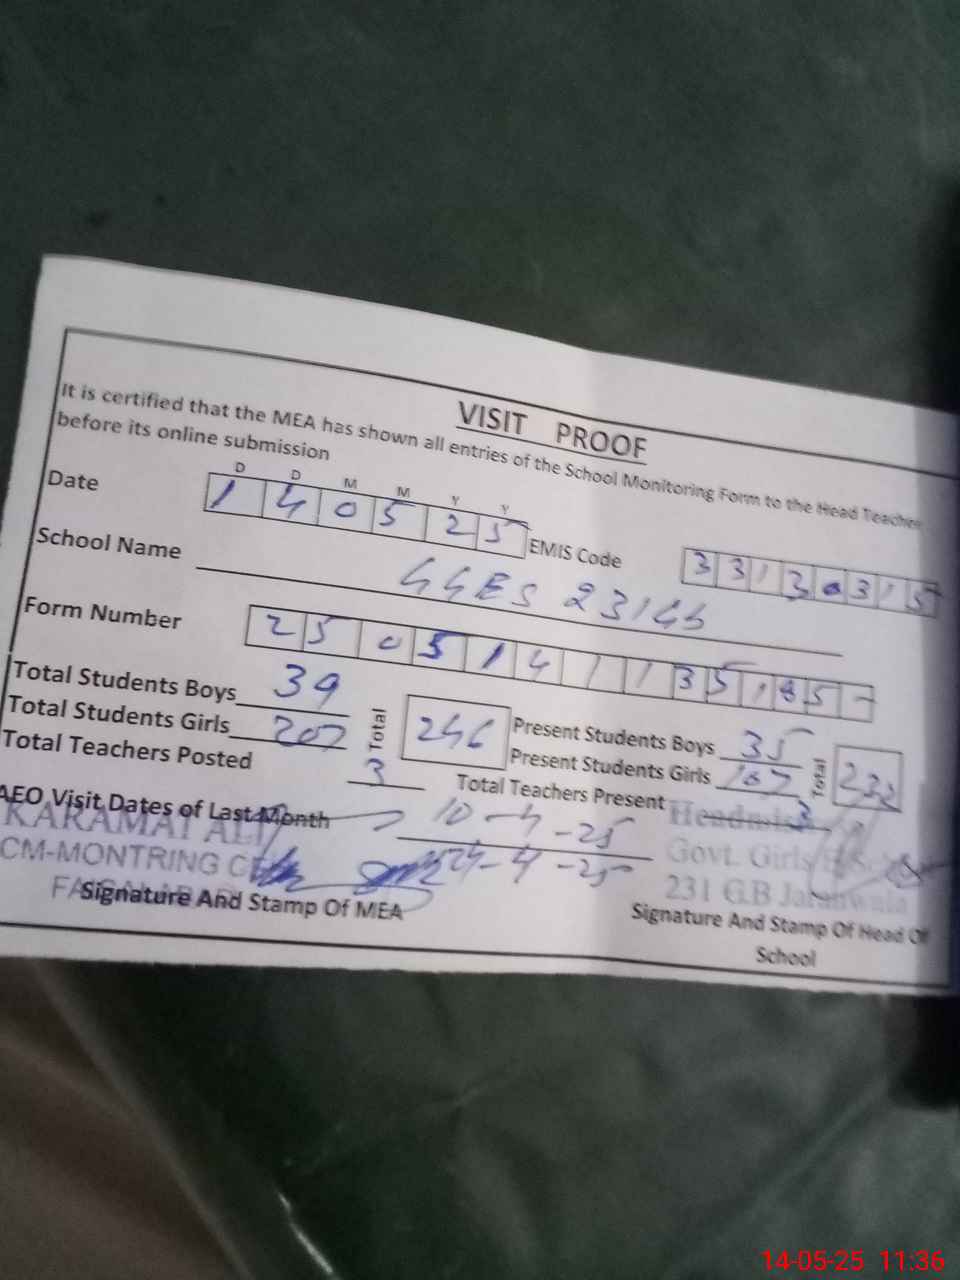 VISIT PROOF
It is certified that the MEA has shown all entries of the School Monitoring Form to the Head Teacher
before its online submission
D D M M Y Y
Date 1 4 0 5 2 5 EMIS Code 3 3 1 3 0 3 1 5
School Name GGES 231GB
Form Number 2 5 0 5 1 4 1 1 3 5
Total Students Boys 39 Total 246 Present Students Boys 35 Total
Total Students Girls 207 Present Students Girls
Total Teachers Posted 3 Total Teachers Present 3
AEO Visit Dates of Last Month 10-4-25
24-4-25
KARAMAT ALI
CM-MONTRING
Signature And Stamp Of MEA
Headmis
Govt. Girls
231 GB Jaranwala
Signature And Stamp Of Head Of
School
14-05-25 11:36